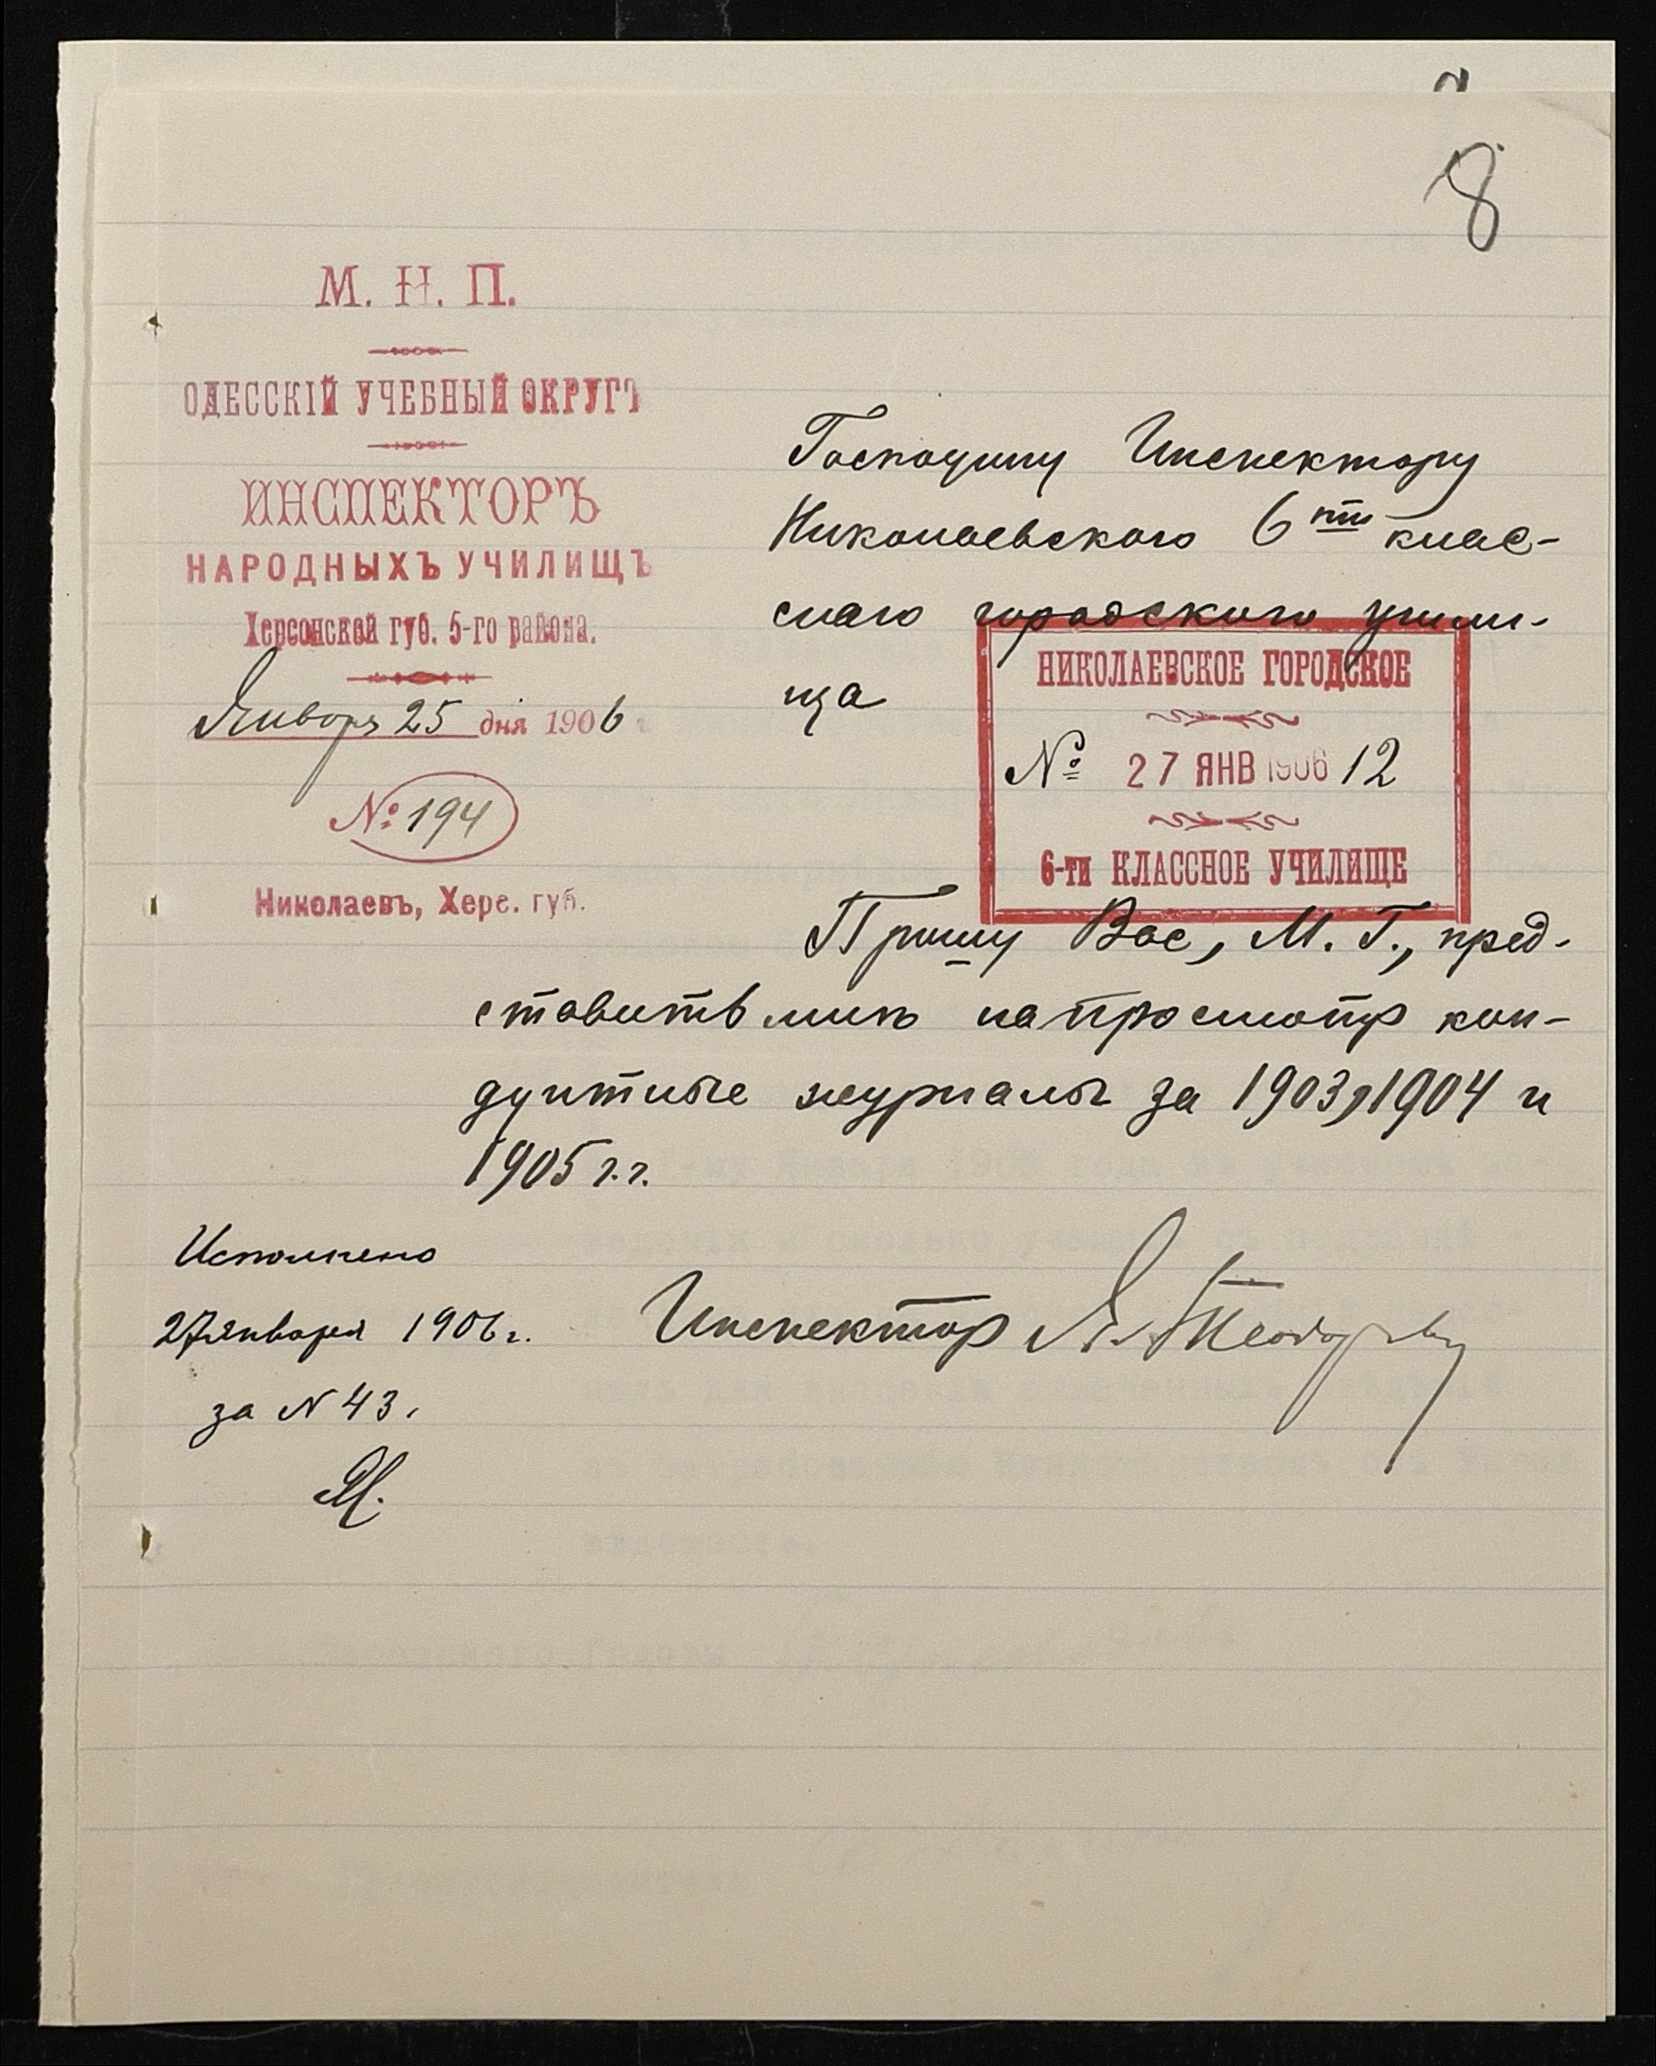 8
М. Н. П.
ОДЕССКІЙ УЧЕБНЫЙ ОКРУГЪ
ИНСПЕКТОРЪ
НАРОДНЫХЪ УЧИЛИЩЪ
Херсонской губ. 5-го района.
Январь 25 дня 1906 г
№ 194
Николаевъ, Херс. губ.
Господину Инспектору
Николаевского 6ти клас-
снаго городского учили-
ща
НИКОЛАЕВСКОЕ ГОРОДСКОЕ
№ 27 ЯНВ 1906 12
6-ти КЛАССНОЕ УЧИЛИЩЕ
Прошу Вас, М. Г., пред-
ставить мнѣ на просмотр кон-
дуитные журналы за 1903, 1904 и
1905 г.г.
Инспектор
Исполнено
27 января 1906 г.
за N 43.